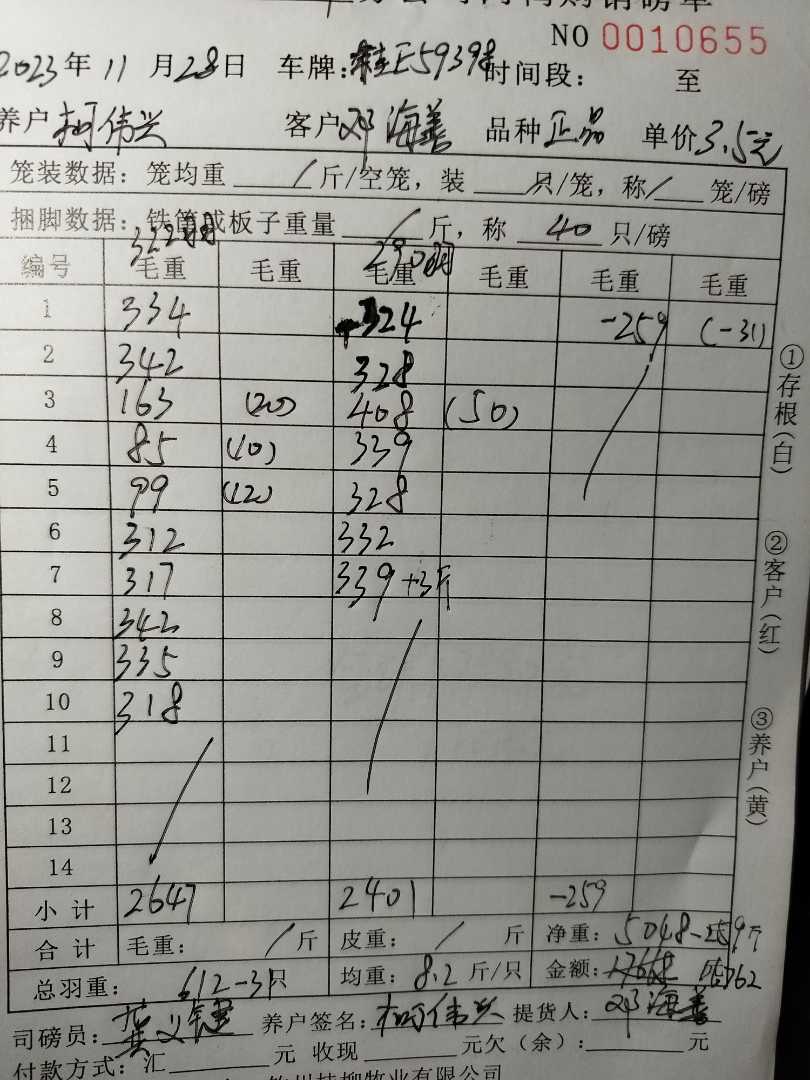 NO 0010655
2023年 11 月 28 日 车牌:桂E59398 时间段: 至
养户 柯伟兴 客户 邓海善 品种 正品 单价 3.5元
笼装数据: 笼均重 / 斤/空笼, 装 只/笼, 称 / 笼/磅
捆脚数据: 铁筐或板子重量 / 斤, 称 40 只/磅
322羽 290羽
编号 毛重 毛重 毛重 毛重 毛重 毛重
1 334 324 -259 (-31)
2 342 328
3 163 (20) 408 (50)
4 85 (10) 339
5 99 (12) 328
6 312 332
7 317 339 +3斤
8 342
9 335
10 318
11
12
13
14
小计 2647 2401 -259
合计 毛重: / 斤 皮重: / 斤 净重: 5048-259斤
总羽重: 612-31只 均重: 8.2 斤/只 金额: 17668
司磅员: 养户签名: 柯伟兴 提货人: 邓海善
付款方式: 汇 元 收现 元欠(余): 元
①存根(白)
②客户(红)
③养户(黄)